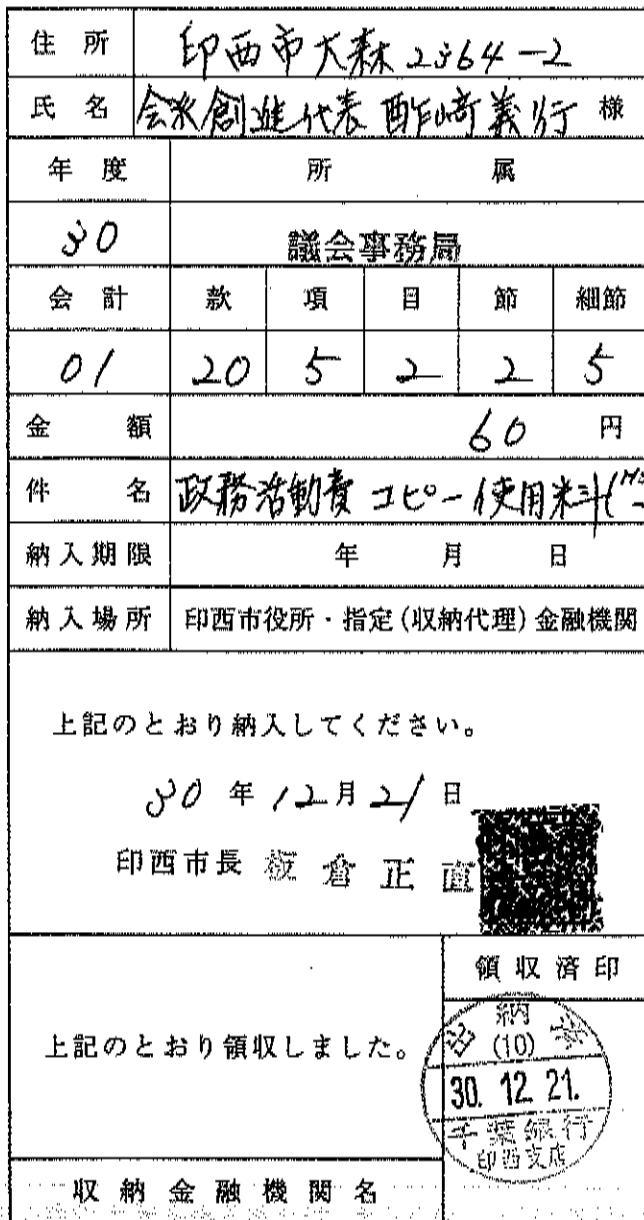 住所 印西市大森2364-2
氏名 会派創進代表 酢崎義行 様
年度 所属
30 議会事務局
会計 款 項 目 節 細節
01 20 5 2 2 5
金額 60 円
件名 政務活動費 コピー使用料(
納入期限 年 月 日
納入場所 印西市役所・指定(収納代理)金融機関
上記のとおり納入してください。
30年12月21日
印西市長 板倉正直
領収済印
上記のとおり領収しました。
出納
(10)
30.12.21.
千葉銀行
印西支店
収納金融機関名